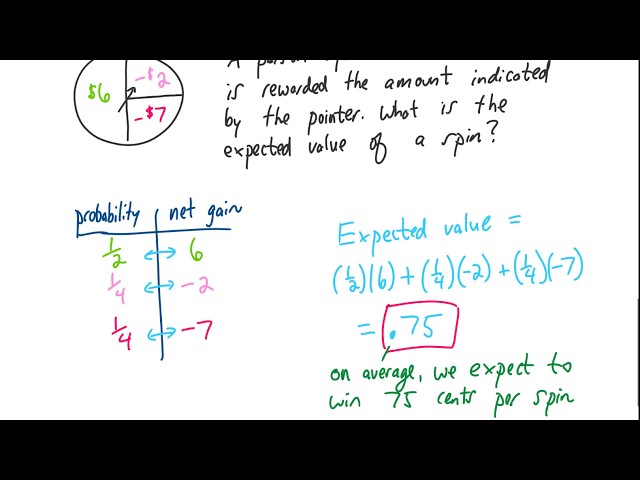 $6
-$2
-$7
is rewarded the amount indicated
by the pointer. What is the
expected value of a spin?
probability net gain
1/2 ↔ 6
1/4 ↔ -2
1/4 ↔ -7
Expected value =
(1/2)(6) + (1/4)(-2) + (1/4)(-7)
= .75
on average, we expect to
win 75 cents per spin